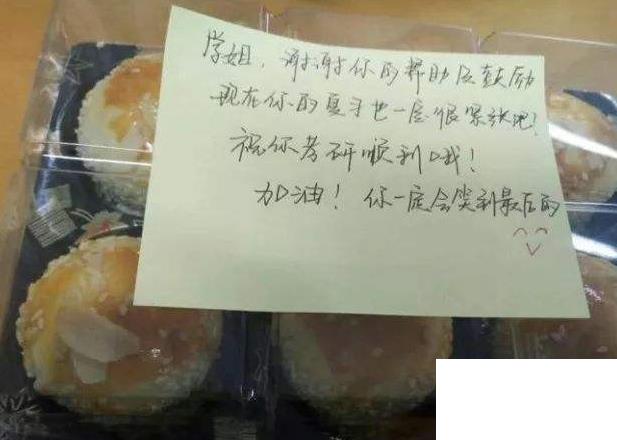 学姐，谢谢你的帮助及鼓励
现在你的复习也一定很紧张吧！
祝你考研顺利哦！
加油！你一定会笑到最后的